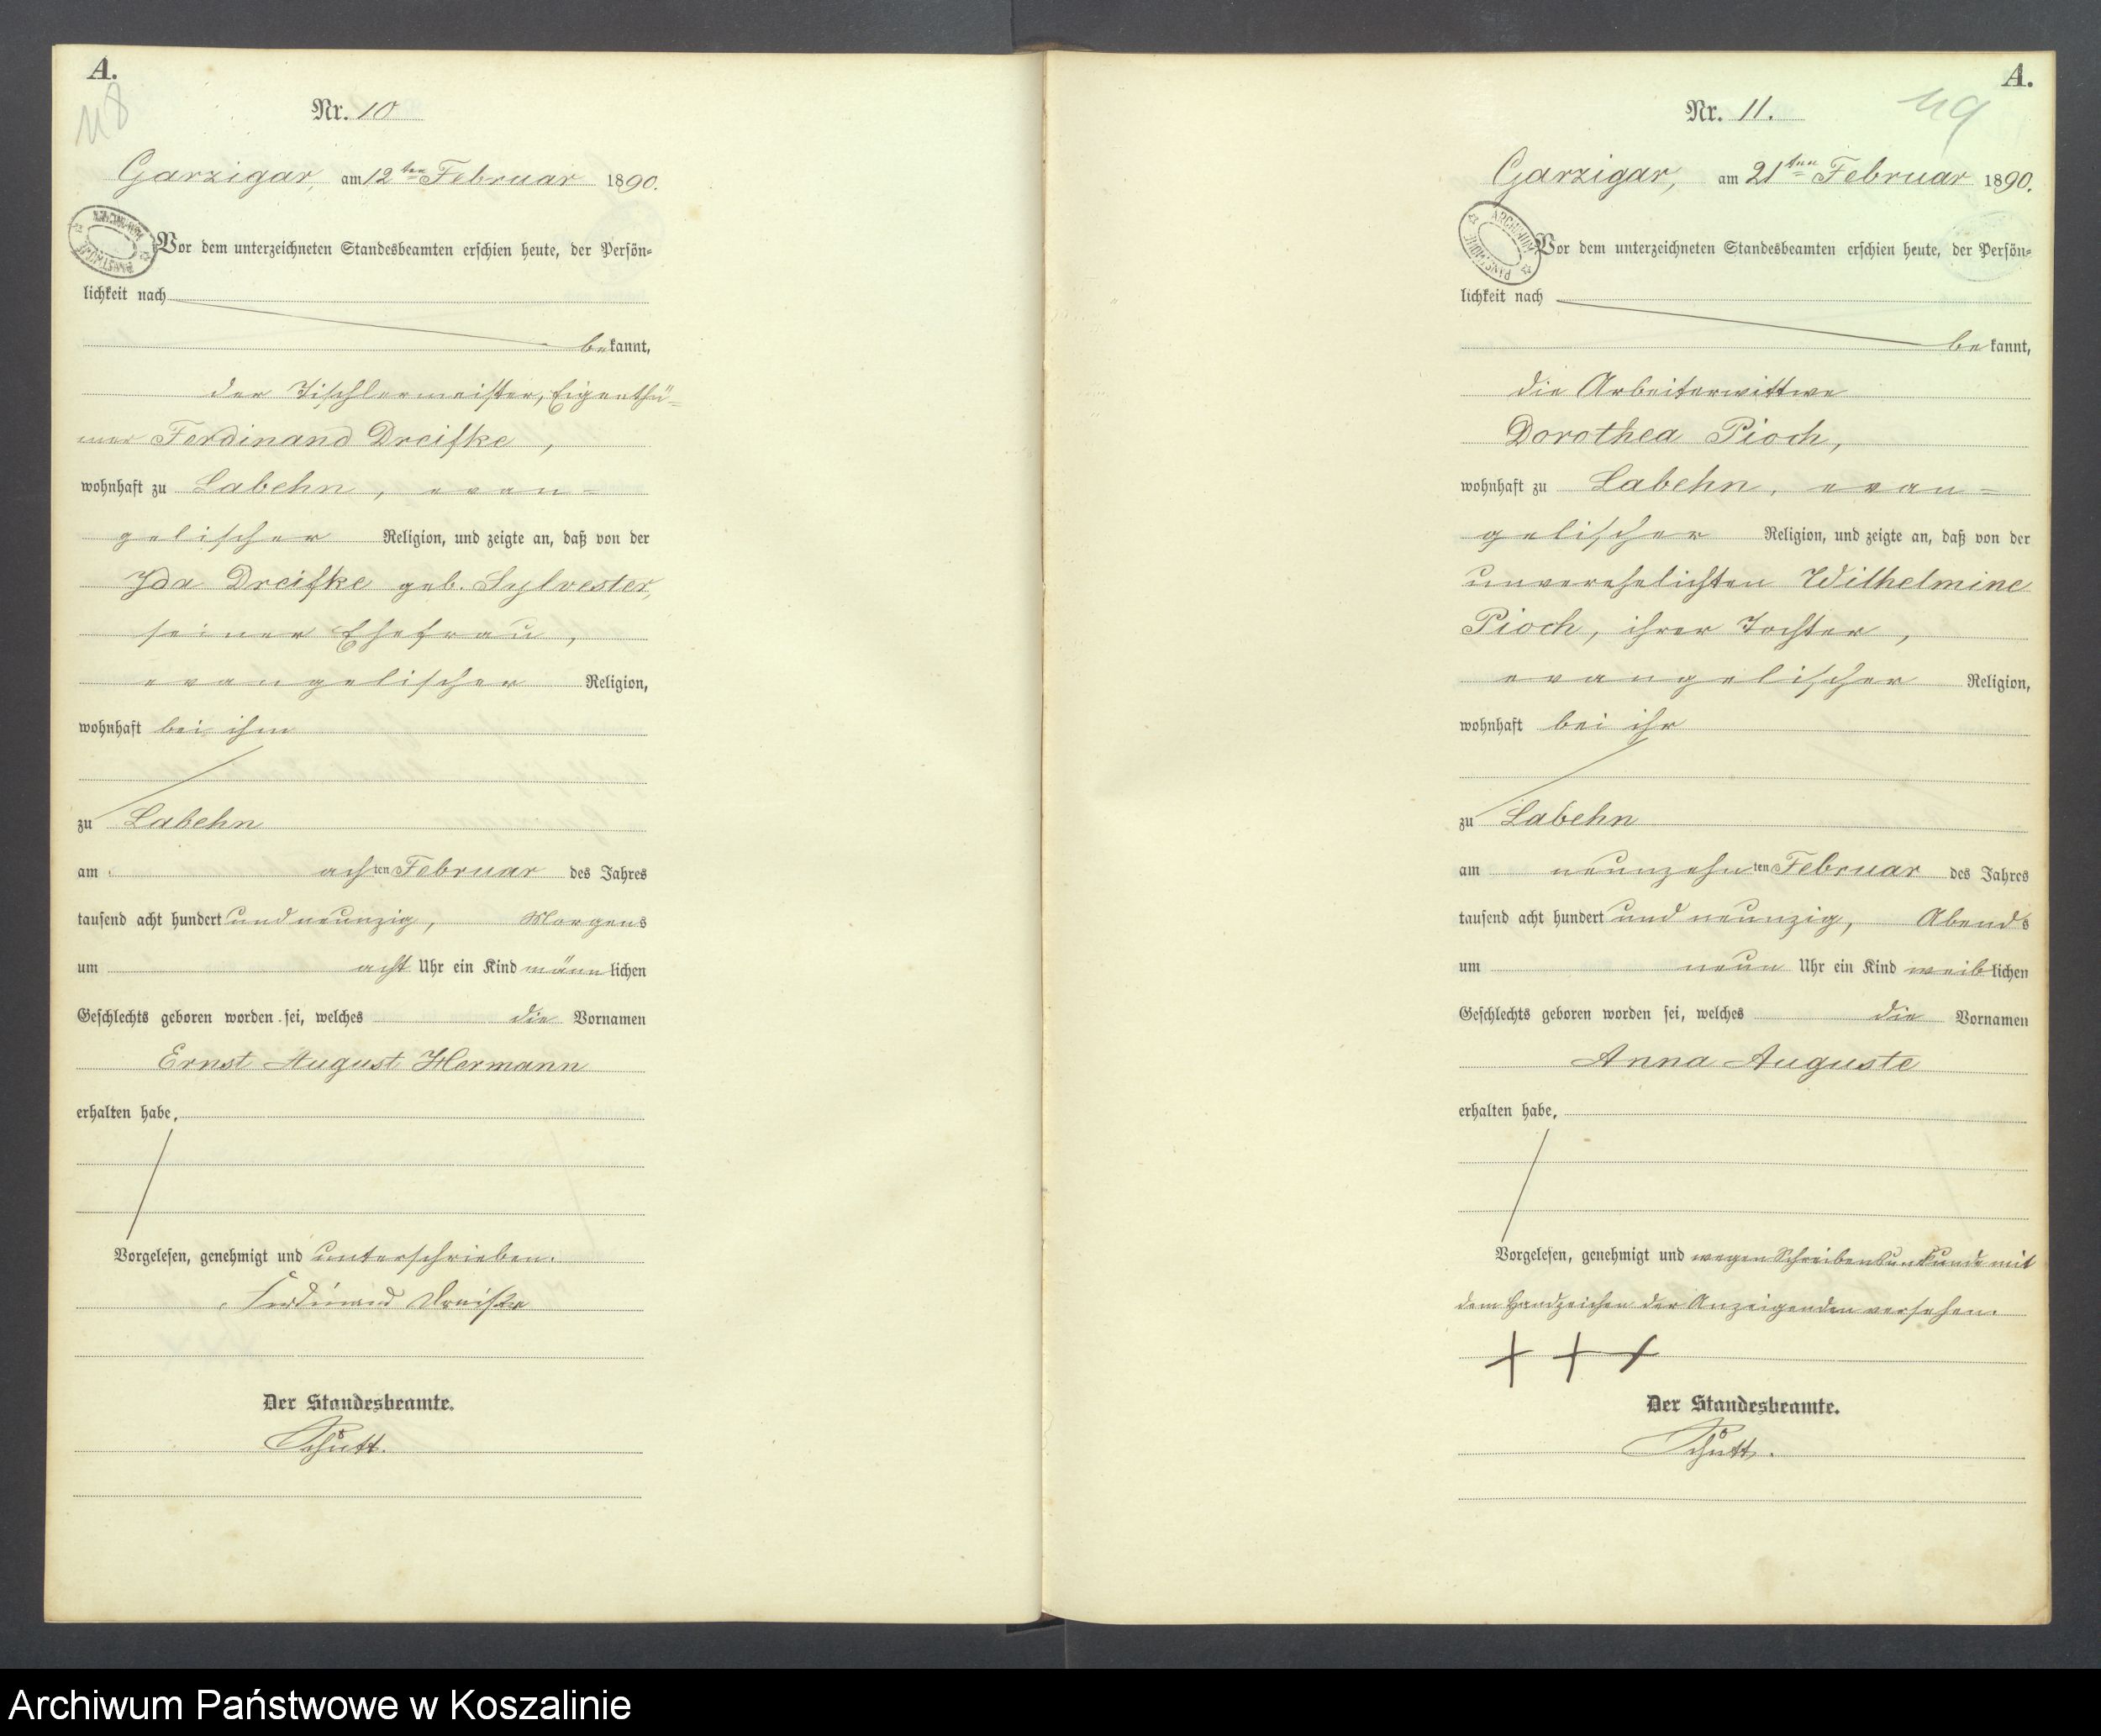 A.
118
Nr. 10
Garzigar, am 12ten Februar 1890.
ARCHIWUM PAŃSTWOWE
Vor dem unterzeichneten Standesbeamten erschien heute, der Persön=
lichkeit nach
bekannt,
der Tischlermeister, Eigenthü=
mer Ferdinand Dreifke,
wohnhaft zu Labehn, evan=
gelischer Religion, und zeigte an, daß von der
Ida Dreifke geb. Sylvester,
seiner Ehefrau,
evangelischer Religion,
wohnhaft bei ihm
zu Labehn
am achten Februar des Jahres
tausend acht hundert und neunzig, Morgens
um acht Uhr ein Kind männlichen
Geschlechts geboren worden sei, welches die Vornamen
Ernst August Hermann
erhalten habe.
Vorgelesen, genehmigt und unterschrieben.
Ferdinand Dreifke
Der Standesbeamte.
Schütt.
A.
119
Nr. 11.
Garzigar, am 21ten Februar 1890.
ARCHIWUM PAŃSTWOWE
Vor dem unterzeichneten Standesbeamten erschien heute, der Persön=
lichkeit nach
bekannt,
die Arbeiterwittwe
Dorothea Pioch,
wohnhaft zu Labehn, evan=
gelischer Religion, und zeigte an, daß von der
unverehelichten Wilhelmine
Pioch, ihrer Tochter,
evangelischer Religion,
wohnhaft bei ihr
zu Labehn
am neunzehnten Februar des Jahres
tausend acht hundert und neunzig, Abends
um neun Uhr ein Kind weiblichen
Geschlechts geboren worden sei, welches die Vornamen
Anna Auguste
erhalten habe.
Vorgelesen, genehmigt und wegen Schreibensunkunde mit
dem Handzeichen der Anzeigenden versehen.
+ + +
Der Standesbeamte.
Schütt.
Archiwum Państwowe w Koszalinie